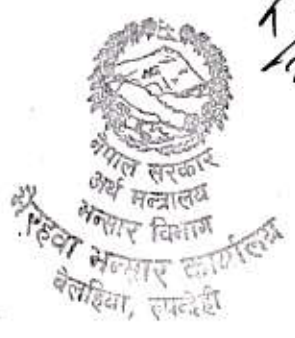 नेपाल सरकार
अर्थ मन्त्रालय
भन्सार विभाग
भैरहवा भन्सार कार्यालय
बेलहिया, रुपन्देही